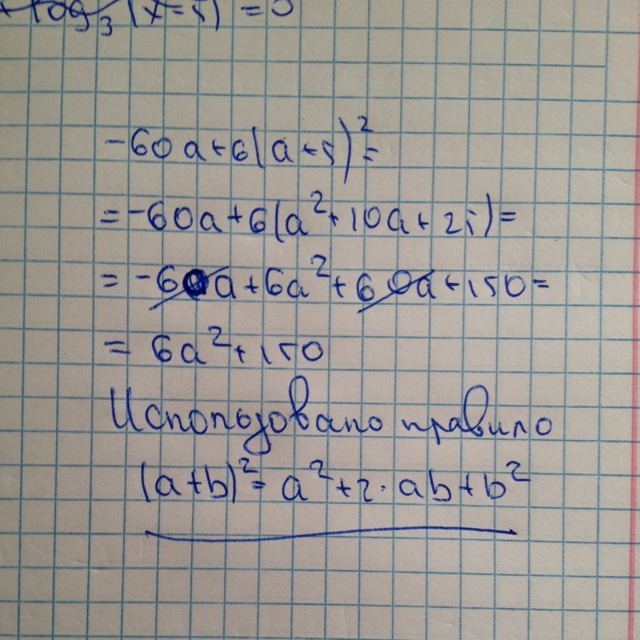 log₃(x-5) = 0
-60a+6(a+5)²=
=-60a+6(a²+10a+25)=
=-60a+6a²+60a+150=
= 6a²+150
Использовано правило
(a+b)²=a²+2·ab+b²